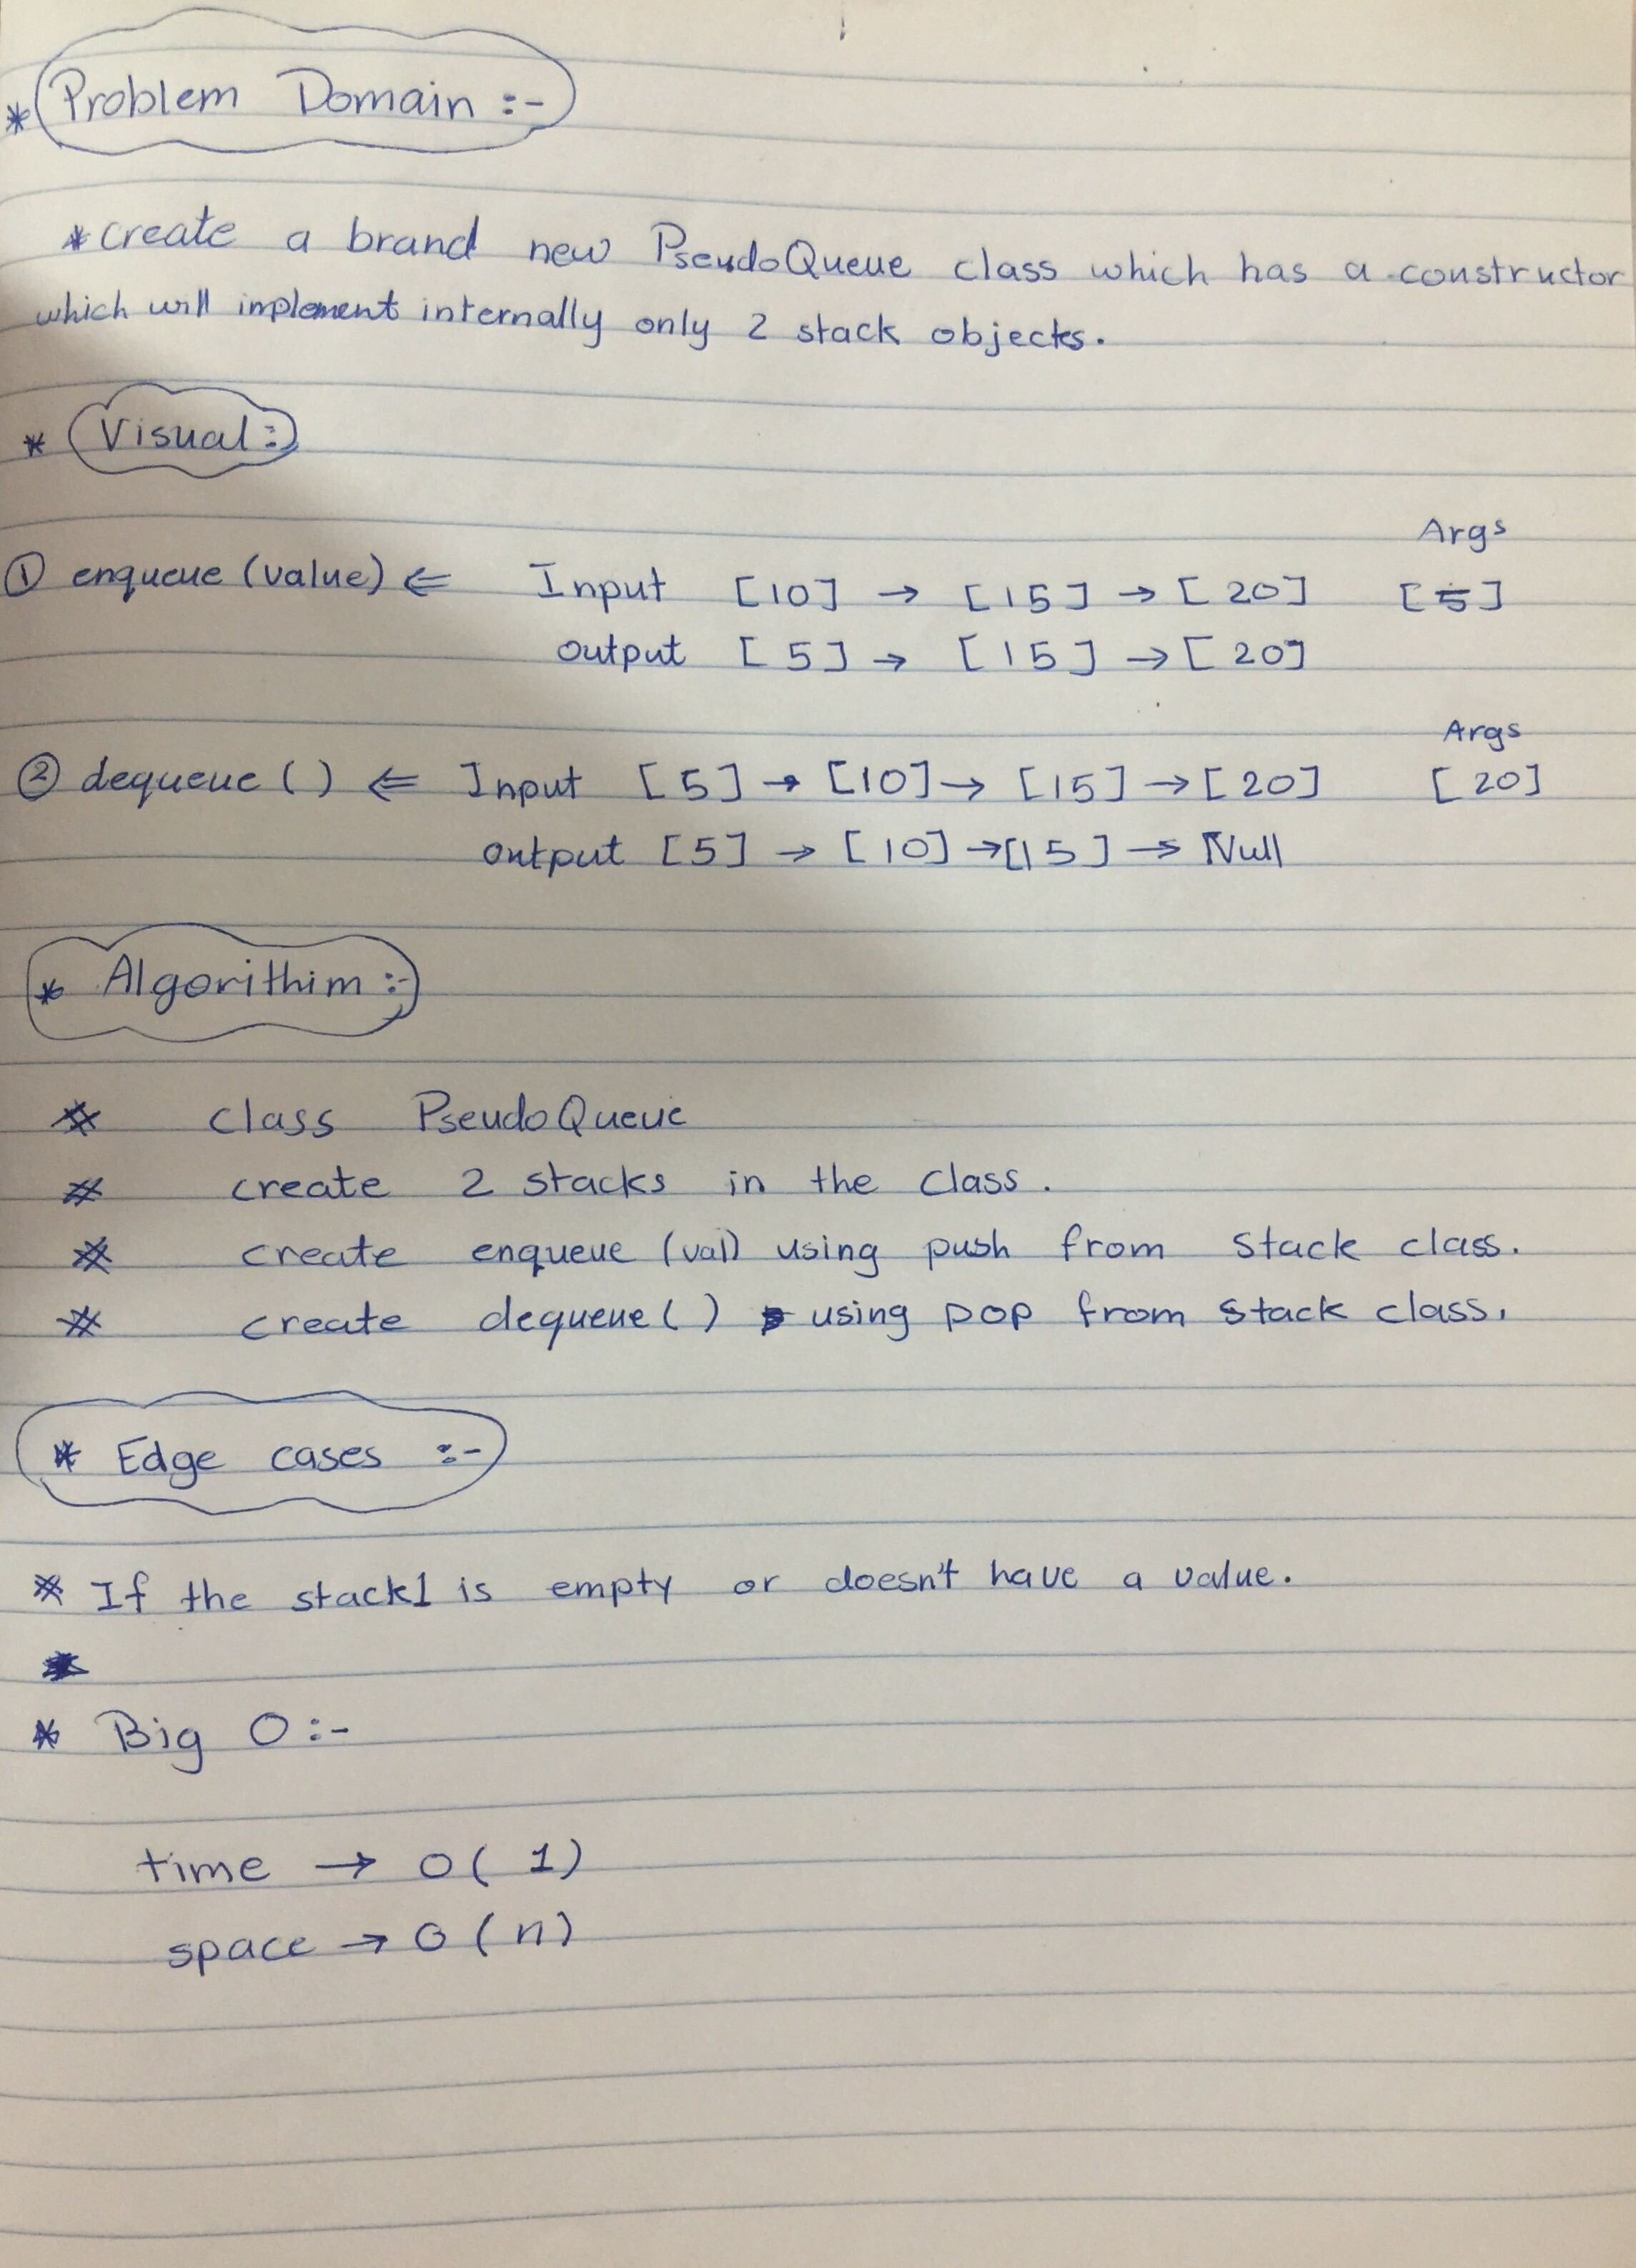 * Problem Domain :-
* create a brand new PseudoQueue class which has a constructor
which will implement internally only 2 stack objects.
* Visual :-
Args
① enqueue (value) ⇐ Input [10] → [15] → [20] [5]
output [5] → [15] → [20]
Args
② dequeue ( ) ⇐ Input [5] → [10] → [15] → [20] [20]
output [5] → [10] → [15] → Null
* Algorithim :-
* class PseudoQueue
* create 2 stacks in the class.
* create enqueue (val) using push from stack class.
* create dequeue ( ) using pop from stack class.
* Edge cases :-
* If the stack1 is empty or doesn't have a value.
*
* Big O :-
time → O( 1)
space → O (n)